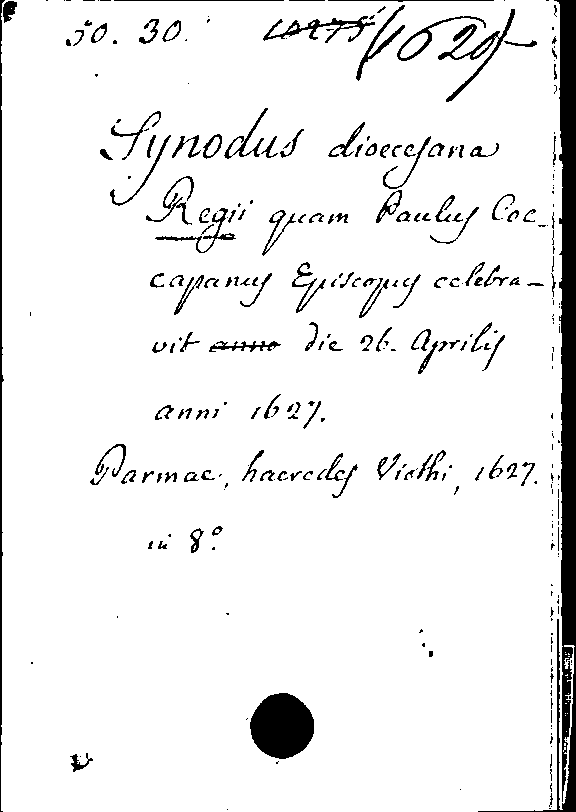 50. 30. 10275 (1620)
Synodus dioecesana
Regii quam Paulus Coc-
capanus Episcopus celebra-
vit anno die 26. Aprilis
anni 1627.
Parmae, haeredes Viothi, 1627.
in 8º